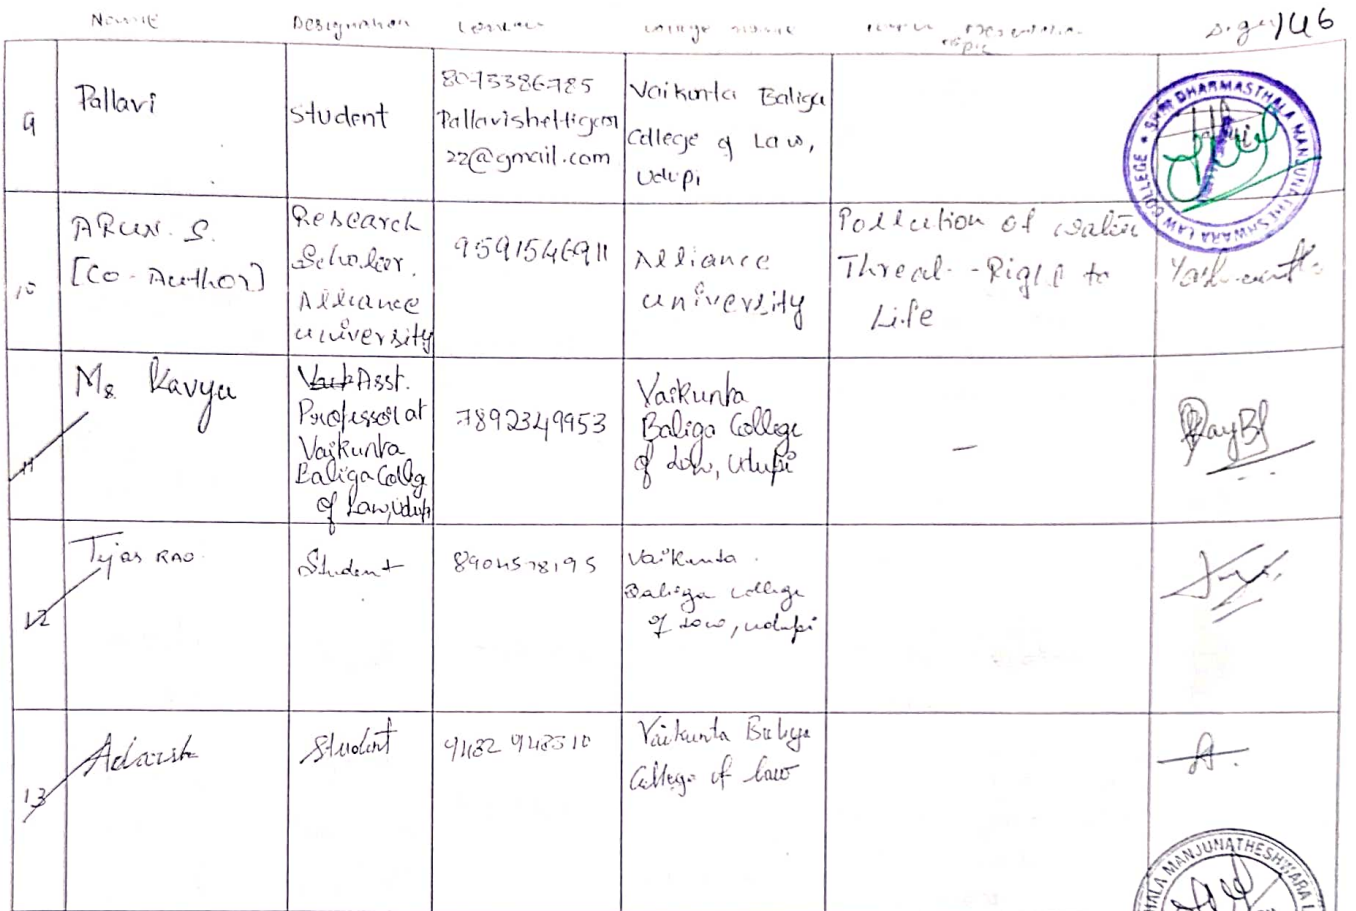 Name Designation Contact College Name Paper Presentation Topic Sign 146
9
Pallavi
Student
Pallavishettigar
22@gmail.com
Vaikunta Baliga
College of Law,
Udupi
SHRI DHARMASTHALA MANJUNATHESHWARA LAW COLLEGE
10
ARUN. S.
[Co-Author]
Research
Scholar.
Alliance
University
9591546911
Alliance
University
Pollution of water
Threat - Right to
Life
11
Ms Kavya
Asst.
Professor at
Vaikunta
Baliga College
of Law, Udupi
7892349953
Vaikunta
Baliga College
of Law, Udupi
–
12
Tejas RAO.
Student
Vaikunta.
Baliga College
of Law, Udupi
13
Adarsh
Student
Vaikunta Baliga
College of law
A.
HALA MANJUNATHESHWARA L